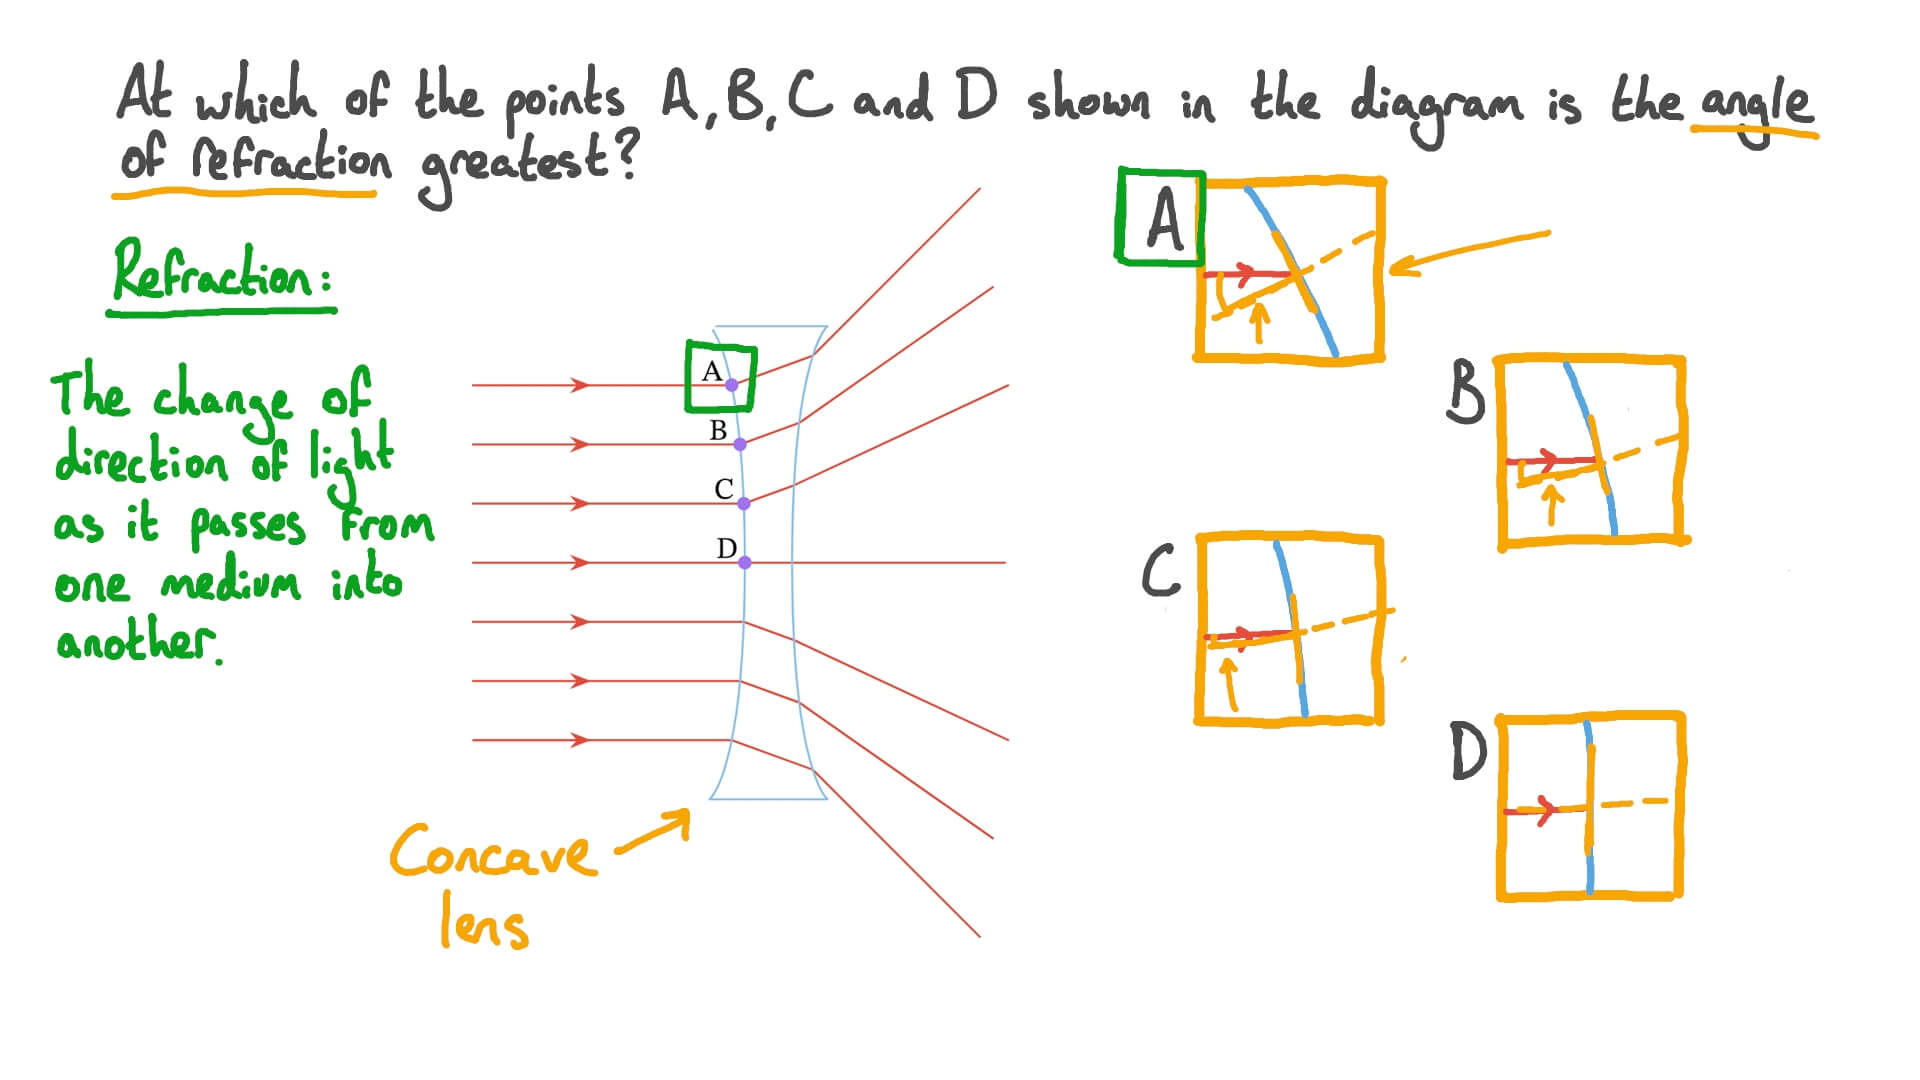 At which of the points A, B, C and D shown in the diagram is the angle
of refraction greatest?
Refraction:
The change of
direction of light
as it passes from
one medium into
another.
A
B
C
D
Concave
lens
A
B
C
D